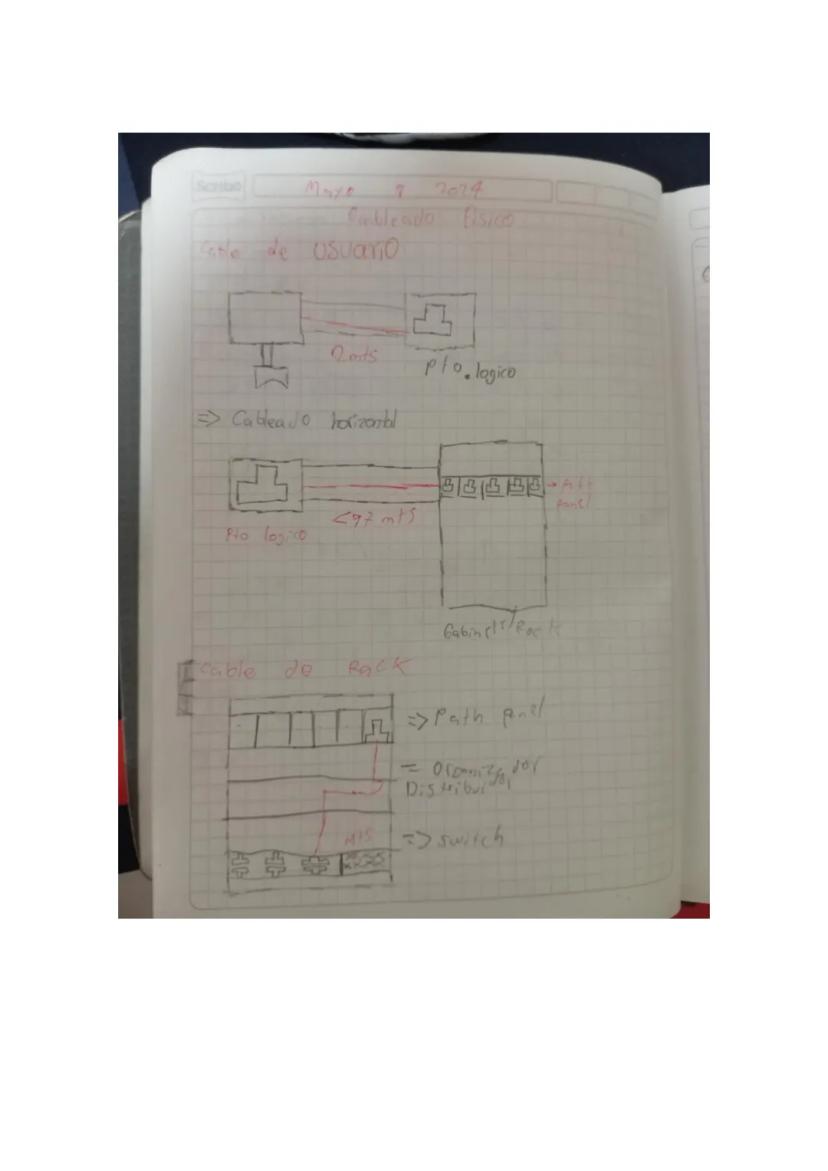 Scribe
Mayo 9 2024
Cableado fisico
Cable de usuario
2 mts
Pto. logico
=> Cableado horizontal
→ Patt
panel
<97 mts
Pto logico
Gabinete/Rack
Cable de Rack
=> Path panel
= Organizador
Distribuidor
MTS
=> switch